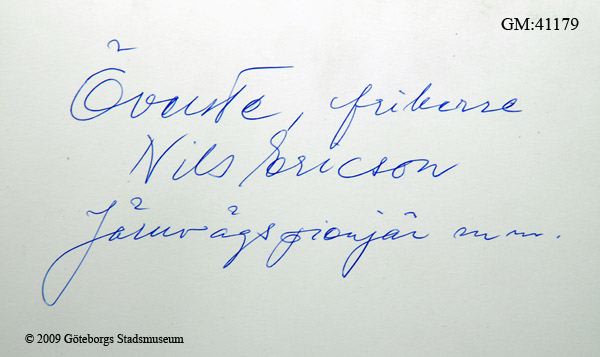 GM:41179
Överste, friherre
Nils Ericson
Järnvägspionjär m.m.
© 2009 Göteborgs Stadsmuseum